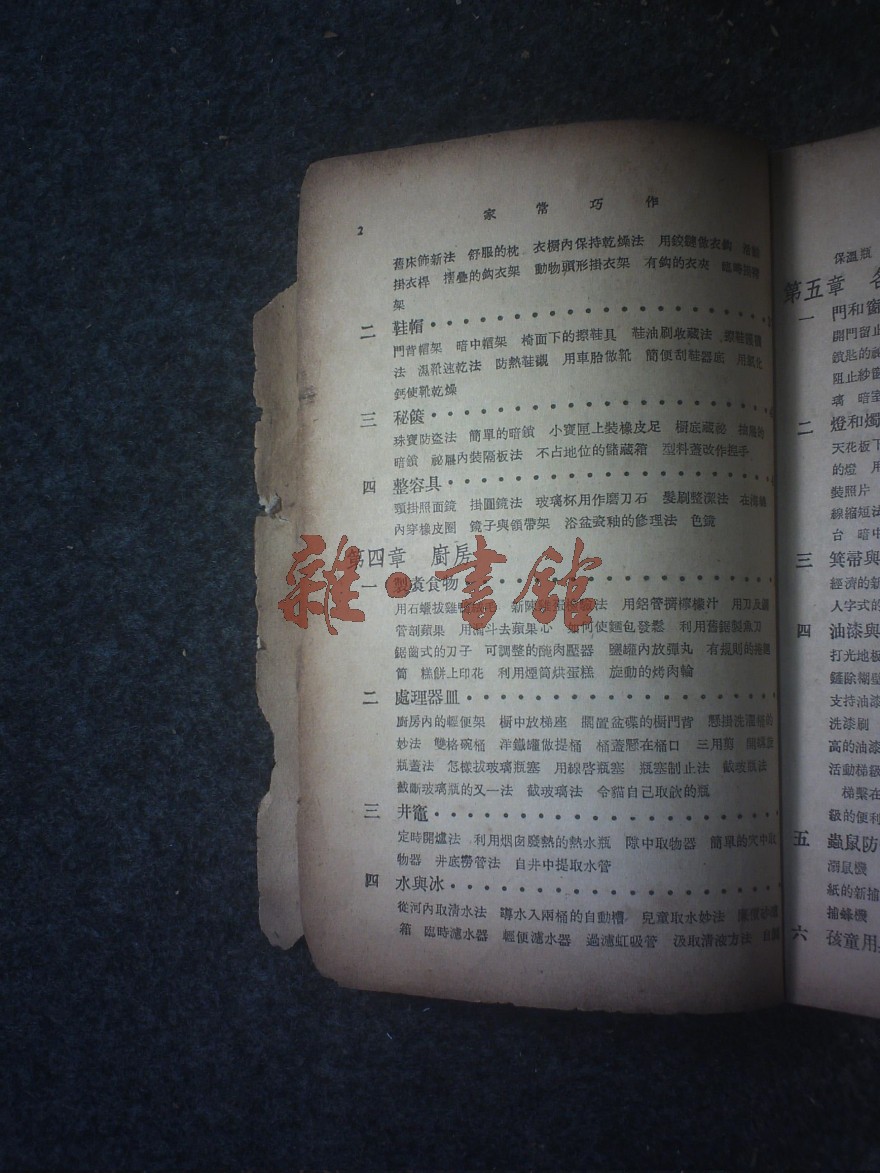 2
家常巧作
舊床飾新法 舒服的枕 衣櫥內保持乾燥法 用鉸鏈做衣鈎
掛衣桿 摺疊的鈎衣架 動物頭形掛衣架 有鈎的衣夾 臨時
架
二 鞋帽
門背帽架 暗中帽架 椅面下的擦鞋具 鞋油刷收藏法 擦鞋
法 濕靴速乾法 防熱鞋襯 用車胎做靴 簡便刮鞋器底 用氯化
鈣使靴乾燥
三 秘篋
珠寶防盜法 簡單的暗鎖 小寶匣上裝橡皮足 櫥底藏祕
暗鎖 祕屜內裝隔板法 不占地位的儲蔵箱 塑料蓋改作握手
四 整容具
頸掛照面鏡 掛圓鏡法 玻璃杯用作磨刀石 髮刷整潔法
內穿橡皮圈 鏡子與領帶架 浴盆瓷釉的修理法 色鏡
第四章 廚房
一 製煮食物
用石蠟拔雞鴨 用鋁管擠檸檬汁 用刀及
管剖蘋果 用漏斗去蘋果心 如何使麵包發鬆 利用舊鋸製魚刀
鋸齒式的刀子 可調整的醃肉壓器 鹽罐內放彈丸 有規則的
筒 糕餅上印花 利用煙筒烘蛋糕 旋動的烤肉輪
二 處理器皿
廚房內的輕便架 櫥中放梯座 擱置盆碟的櫥門背 懸掛洗濯桶的
妙法 雙格碗桶 洋鐵罐做提桶 桶蓋懸在桶口 三用剪
瓶蓋法 怎樣拔玻璃瓶塞 用線啓瓶塞 瓶塞制止法 截玻瓶法
截斷玻璃瓶的又一法 截玻璃法 令貓自己取飲的瓶
三 井竈
定時開爐法 利用烟囪發熱的熱水瓶 隙中取物器 簡單的穴中取
物器 井底撈管法 自井中提取水管
四 水與冰
從河內取清水法 導水入兩桶的自動槽 兒童取水妙法
箱 臨時濾水器 輕便濾水器 過濾虹吸管 汲取清液方法
保溫瓶
第五章
一 門和窗
開門留
鎖匙的
阻止紗窗
璃 暗室
二 燈和燭
天花板下
的燈 用
裝照片
線縮短法
台 暗中
三 箕帚與
經濟的新
人字式的
四 油漆與
打光地板
鏟除糊壁
支持油漆
洗漆刷
高的油漆
活動梯級
梯繫在
級的便利
五 蟲鼠防
溺鼠機
紙的新捕
捕蜂機
六 孩童用
雜·書館